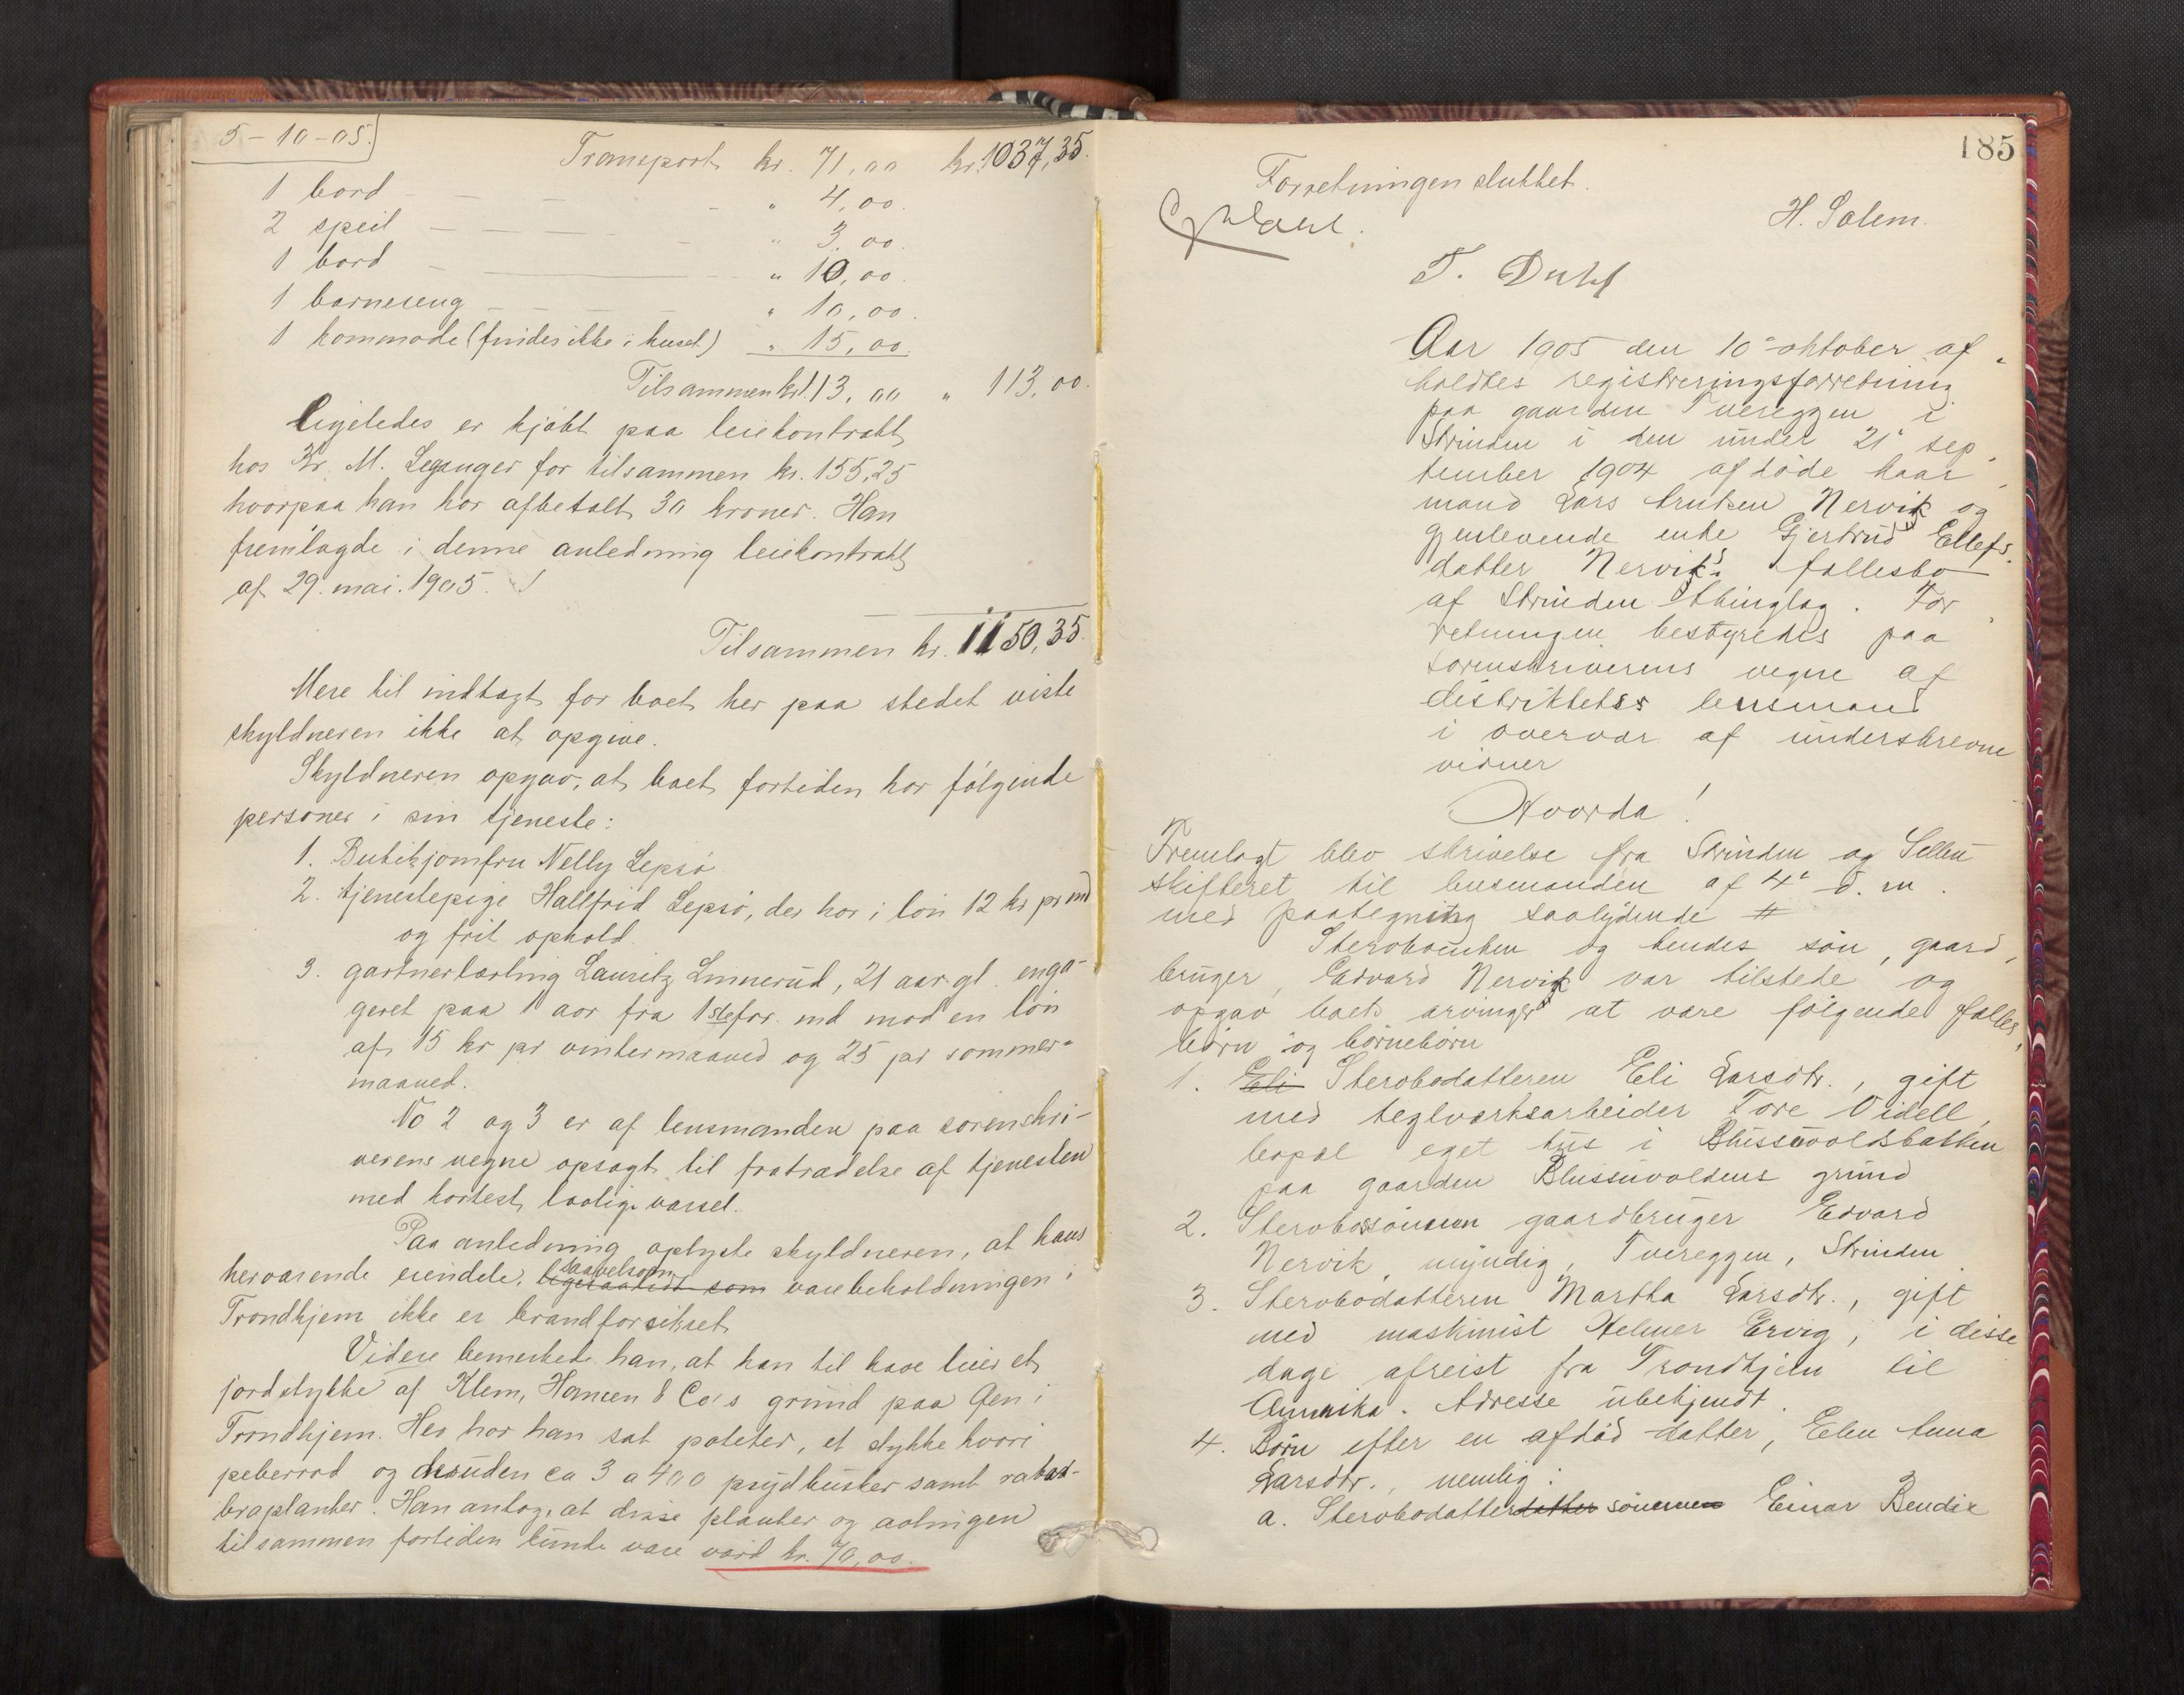 5-10-05.
Transport kr. 71,00 kr. 1037,35.
1 bord - - - " 4,00.
2 speil - - - - " 3,00.
1 bord - " 10,00.
1 barneseng - - - " 10,00.
1 kommode (findes ikke i huset) " 15,00.
Tilsammen kr. 113,00 " 113,00.
Ligeledes er kjøbt paa leiekontrakt
hos Kr. M. for tilsammen kr. 155,25
hvorpaa han har afbetalt 30 kroner. Han
fremlagde i denne anledning leiekontrakt
af 29. mai 1905.
Tilsammen kr. 1150,35.
Mere til indtægt for boet her paa stedet viste
skyldneren ikke at opgive.
Skyldneren opgav, at boet fortiden har følgende
personer i sin tjeneste:
1. Butikjomfru Nelly Lepsø
2. tjenestepige Hallfrid Lepsø, der har i løn 12 kr pr md
og frit ophold.
3. gartnerlærling Lauritz Linnerud, 21 aar gl. enga-
geret paa 1 aar fra 1ste for. md mod en løn
af 15 kr pr vintermaaned og 25 pr sommer-
maaned.
No 2 og 3 er af lensmanden paa sorenskri-
verens vegne opsagt til fratrædelse af tjenesten
med kortest lovlige varsel.
Paa anledning oplyste skyldneren, at hans
herværende eiendele, saavelsom
ligesaalidt som varebeholdningen i
Trondhjem ikke er brandforsikret.
Videre bemerkede han, at han til have leier et
jordstykke af Klem, Hansen & Co's grund paa Øen i
Trondhjem. Her har han sat poteter, et stykke hvori
peberrod og desuden ca 3 a 400 prydbusker samt rabar-
braplanter. Han antog, at disse planter og avlingen
tilsammen fortiden kunde være værd kr. 70,00.
185
Forretningen sluttet.
H. Solem.
T. Dahl
Aar 1905 den 10de oktober af-
holdtes registreringsforretning
paa gaarden Tvereggen i
Strinden i den under 21de sep-
tember 1904 afdøde kaar-
mand Lars Knutsen Nervik og
gjenlevende enke Gjertrud Ellefs-
datter Nervik's fællesbo
af Strinden thinglag. For-
retningen bestyredes paa
sorenskriverens vegne af
distriktets lensmand
i overvær af underskrevne
vidner
Hvorda!
Fremlagt blev skrivelse fra Strinden og Selbu
skifteret til lensmanden af 4de d. m.
med paategning saalydende #
Sterboenken og hendes søn, gaard-
bruger, Edvard Nervik var tilstede og
opgav boets arvinger at være følgende fælles-
børn og børnebørn
1. Eli Sterbodatteren Eli Larsdtr., gift
med teglverksarbeider Tore Videll,
bopæl eget hus i Blussuvoldsbakken
paa gaarden Blussuvoldens grund
2. Sterbosønnen gaardbruger Edvard
Nervik, myndig, Tvereggen, Strinden
3. Sterbodatteren Martha Larsdtr., gift
med maskinist Helmer Ervig, i disse
dage afreist fra Trondhjem til
Amerika. Adresse ubekjendt.
4. Børn efter en afdød datter, Elen Anna
Larsdtr., nemlig:
a. Sterbodatterdatter sønnen Einar Bendix